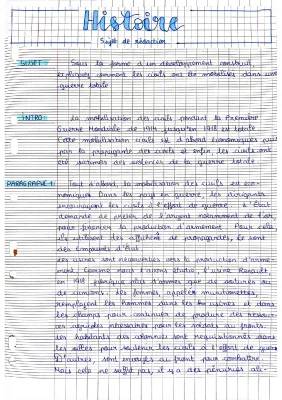 Histoire
Sujet de rédaction
SUJET Sous la forme d'un développement construit,
expliquez comment les civils ont été mobilisés dans une
guerre totale
INTRO La mobilisation des civils pendant la Première
Guerre Mondiale de 1914 jusqu'en 1918 est totale.
Cette mobilisation civils est d'abord économiques puis
par la propagande des civils et enfin les civils ont
été victimes des violences de la guerre totale
PARAGRAPHE 1 Tout d'abord, la mobilisation des civils est éco-
nomiques. Dans les pays en guerre, les dirigeants
encouragent les civils à l'effort de guerre. L'État
demande de prêter de l'argent notamment de l'or
pour financer la production d'armement. Pour cela
ils utilisent des affiches de propagandes, ce sont
des emprunts d'État.
des usines sont reconverties vers la production d'arme-
ment. Comme nous l'avons étudié, l'usine Renault,
en 1918 fabrique plus d'armes que de voitures ou
de camions. Les femmes, appelées munitionnettes,
remplacent les hommes dans les usines et dans
les champs pour continuer de produire des ressour-
ces agricoles nécessaires pour les soldats au fronts.
des habitants des colonies sont réquisitionnés dans
les usines pour soutenir les civils à l'effort de guerre
D'autres, sont envoyés au front pour combattre.
Mais cela ne suffit pas, il y a des pénuries ali-